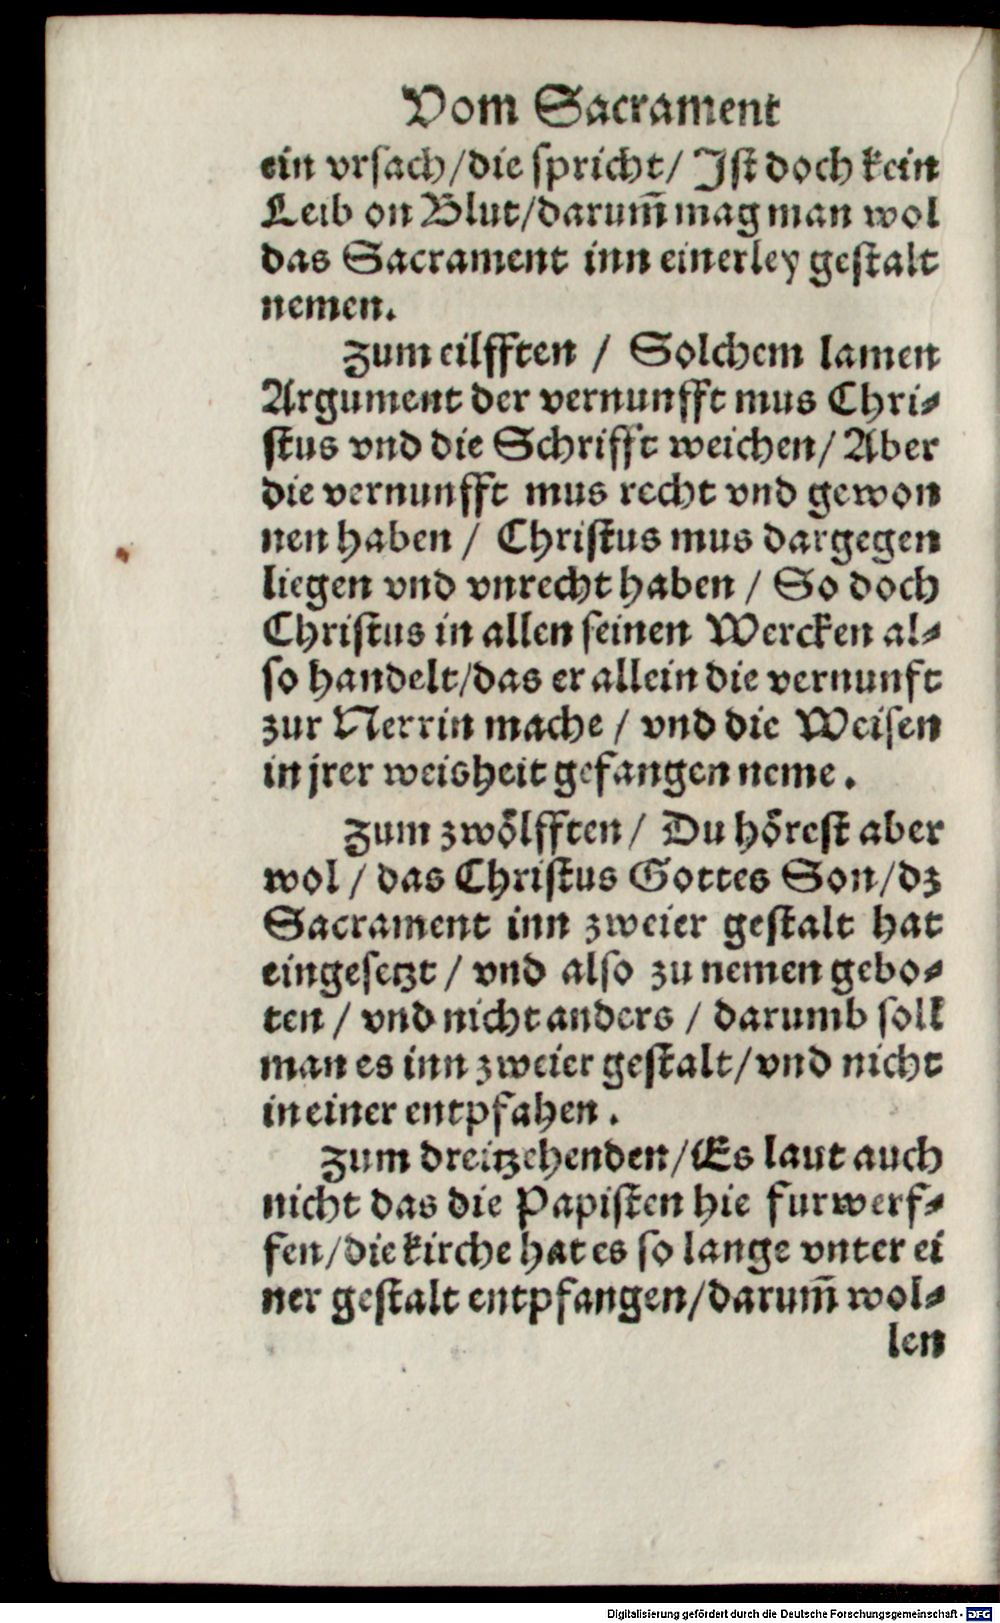 Vom Sacrament
ein vrsach/die spricht/ Ist doch kein
Leib on Blut/darum̃ mag man wol
das Sacrament inn einerley gestalt
nemen.
Zum eilfften / Solchem lamen
Argument der vernunfft mus Chri⸗
stus vnd die Schrifft weichen/ Aber
die vernunfft mus recht vnd gewon
nen haben / Christus mus dargegen
liegen vnd vnrecht haben / So doch
Christus in allen seinen Wercken al⸗
so handelt/das er allein die vernunft
zur Nerrin mache / vnd die Weisen
in jrer weisheit gefangen neme.
Zum zwoͤlfften/ Du hoͤrest aber
wol / das Christus Gottes Son/dz
Sacrament inn zweier gestalt hat
eingesetzt / vnd also zu nemen gebo⸗
ten / vnd nicht anders / darumb soll
man es inn zweier gestalt/vnd nicht
in einer entpfahen.
Zum dreitzehenden/Es laut auch
nicht das die Papisten hie furwerf⸗
fen/die kirche hat es so lange vnter ei
ner gestalt entpfangen/darum̃ wol⸗
len
Digitalisierung gefördert durch die Deutsche Forschungsgemeinschaft - DFG